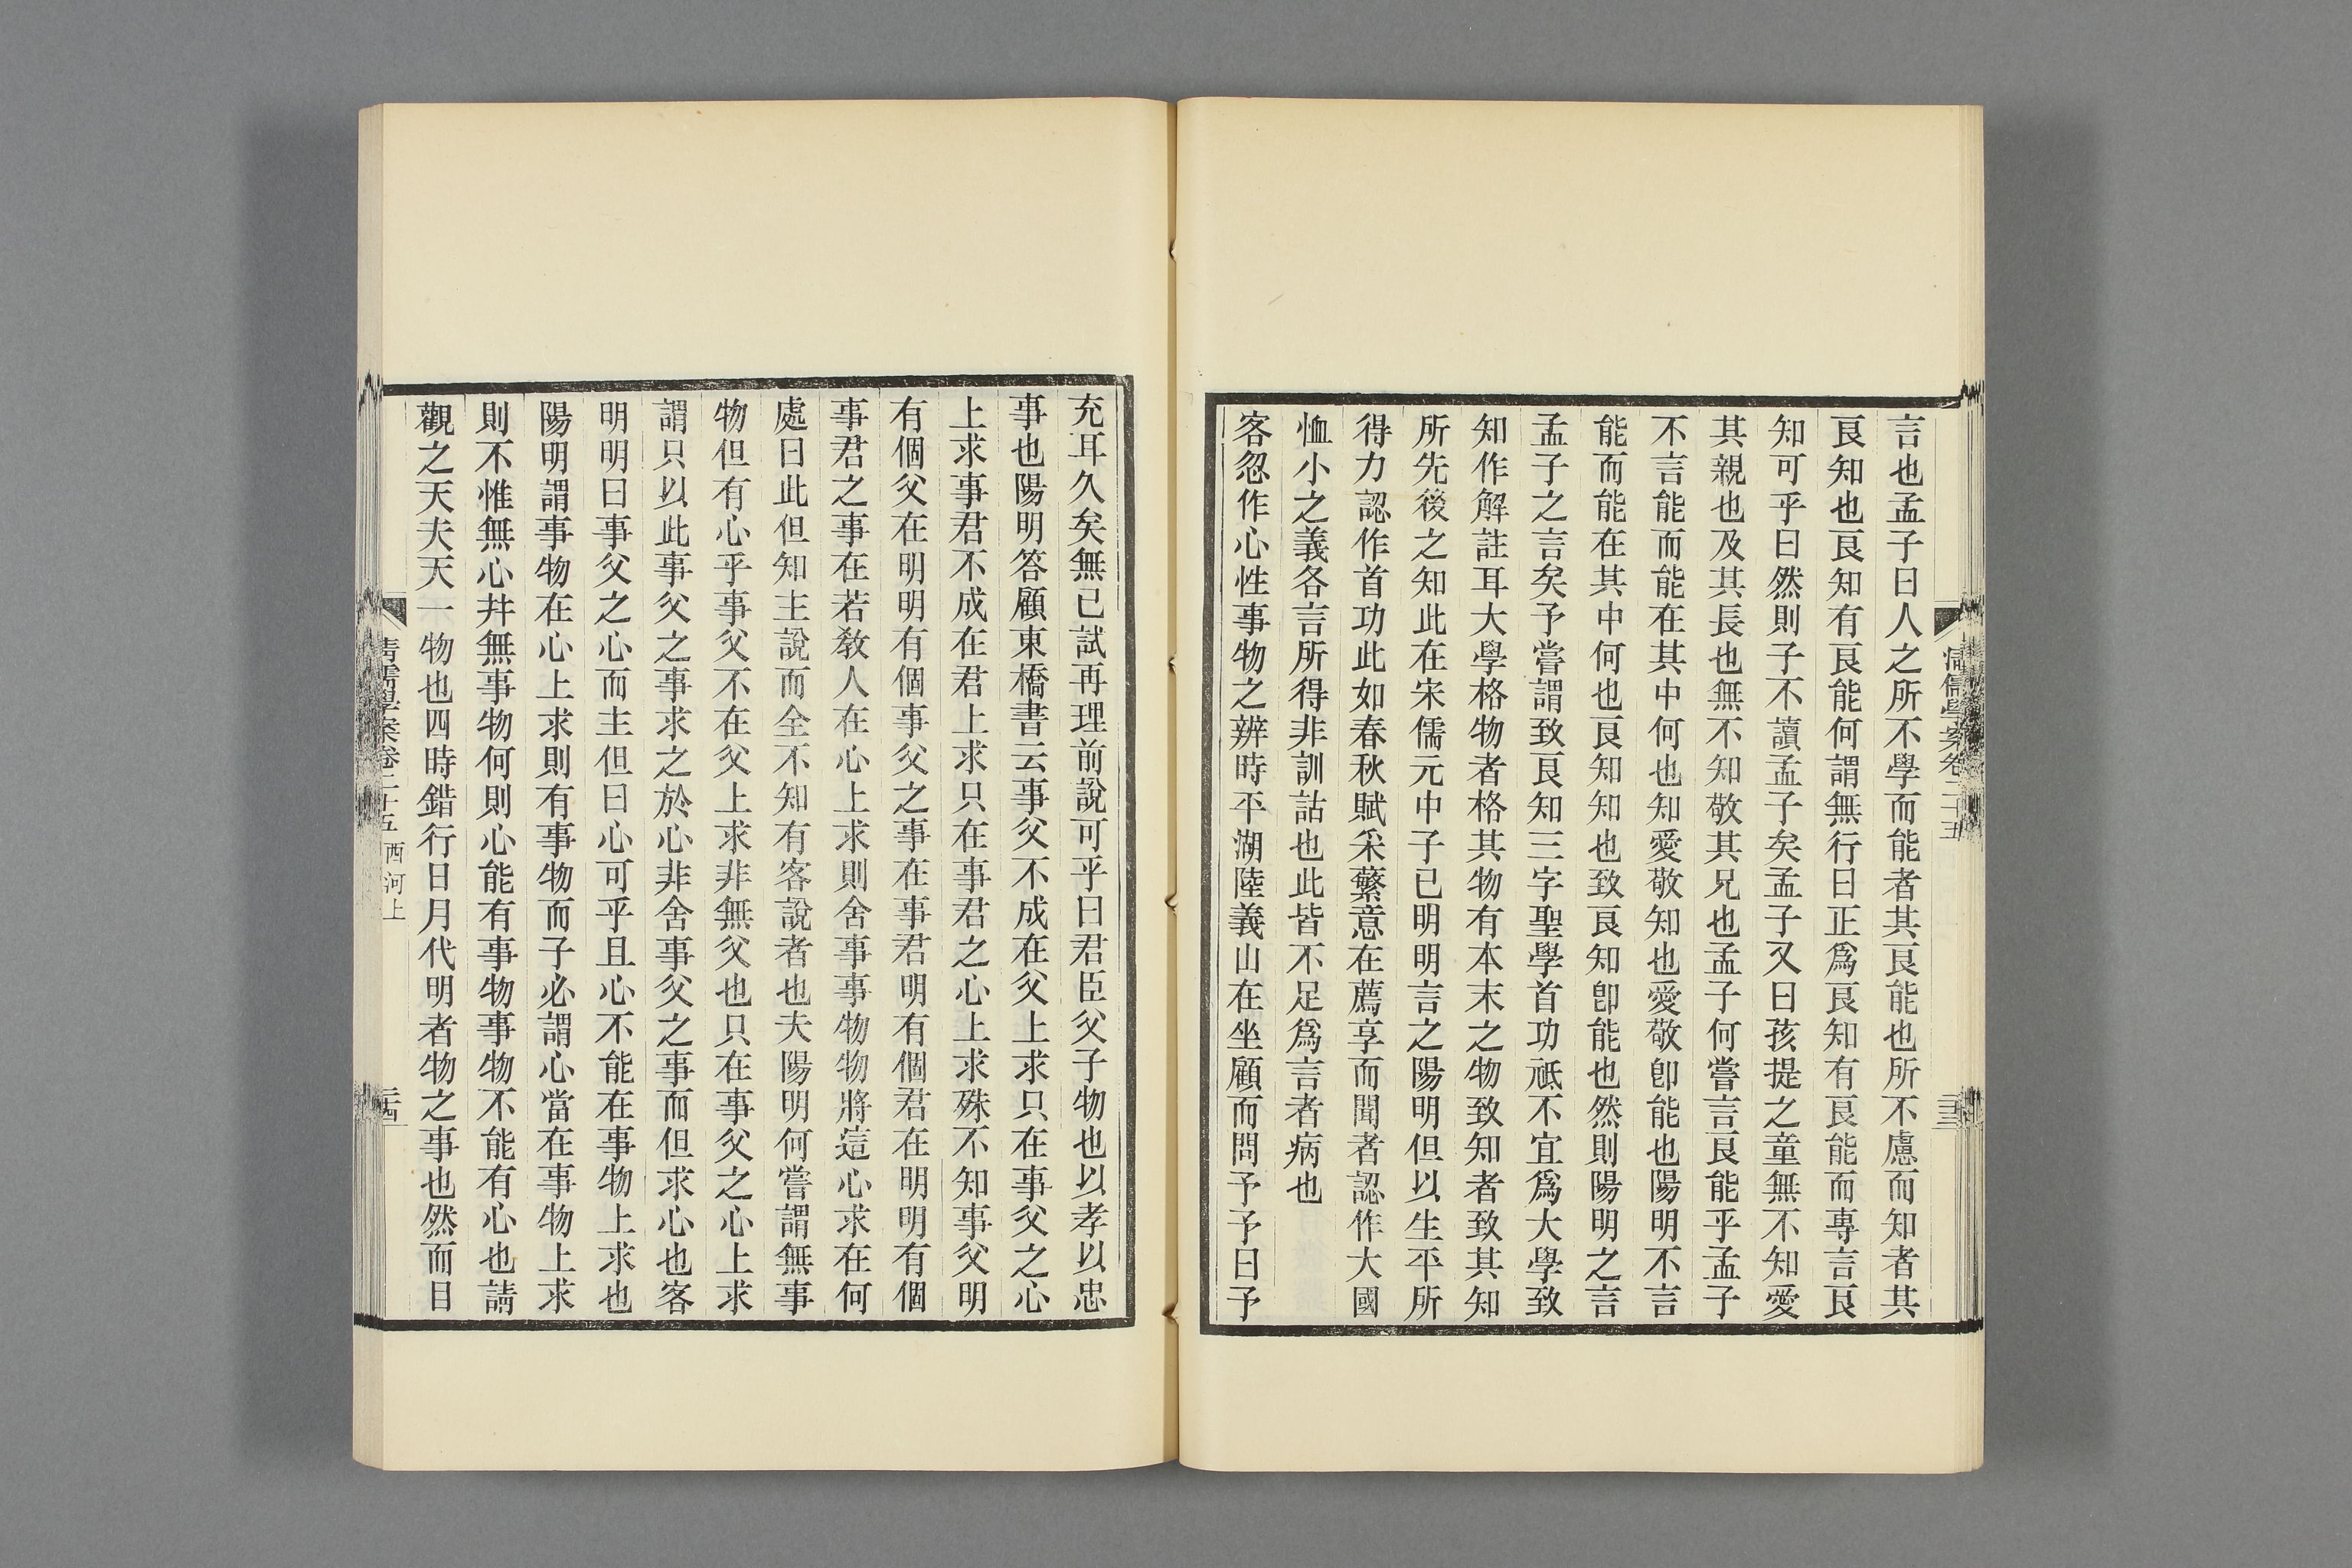 言也孟子曰人之所不學而能者其良能也所不慮而知者其
良知也良知有良能何謂無行曰正爲良知有良能而專言良
知可乎曰然則子不讀孟子矣孟子又曰孩提之童無不知愛
其親也及其長也無不知敬其兄也孟子何嘗言良能乎孟子
不言能而能在其中何也知愛敬知也愛敬卽能也陽明不言
能而能在其中何也良知知也致良知卽能也然則陽明之言
孟子之言矣予嘗謂致良知三字聖學首功祗不宜爲大學致
知作解註耳大學格物者格其物有本末之物致知者致其知
所先後之知此在宋儒元中子已明明言之陽明但以生平所
得力認作首功此如春秋賦采蘩意在薦享而聞者認作大國
恤小之義各言所得非訓詁也此皆不足爲言者病也
客忽作心性事物之辨時平湖陸義山在坐顧而問予予曰予
清儒學案卷二十五
三三
充耳久矣無已試再理前說可乎曰君臣父子物也以孝以忠
事也陽明答顧東橋書云事父不成在父上求只在事父之心
上求事君不成在君上求只在事君之心上求殊不知事父明
有個父在明明有個事父之事在事君明有個君在明明有個
事君之事在若敎人在心上求則舍事事物物將這心求在何
處曰此但知主說而全不知有客說者也夫陽明何嘗謂無事
物但有心乎事父不在父上求非無父也只在事父之心上求
謂只以此事父之事求之於心非舍事父之事而但求心也客
明明曰事父之心而主但曰心可乎且心不能在事物上求也
陽明謂事物在心上求則有事物而子必謂心當在事物上求
則不惟無心幷無事物何則心能有事物事物不能有心也請
觀之天夫天一物也四時錯行日月代明者物之事也然而目
清儒學案卷二十五 西河上
三四